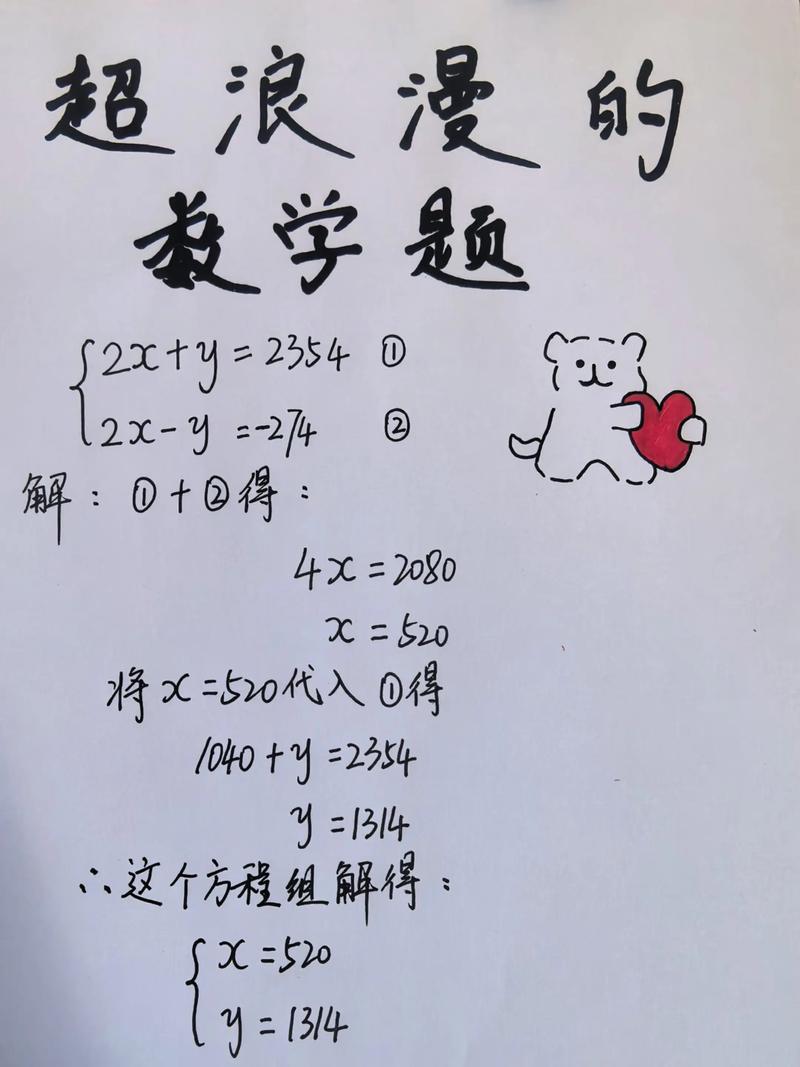 超浪漫的
数学题
2x+y=2354 ①
2x-y=-274 ②
解：①+②得：
4x=2080
x=520
将x=520代入①得
1040+y=2354
y=1314
∴这个方程组解得：
x=520
y=1314